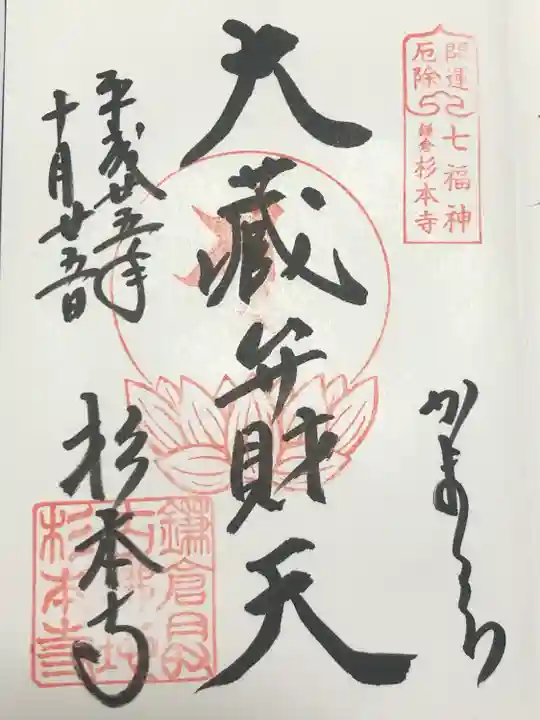 開運 七福神
厄除 鎌倉 杉本寺
かまくら
大蔵弁財天
平成廿五年
十月廿五日
杉本寺